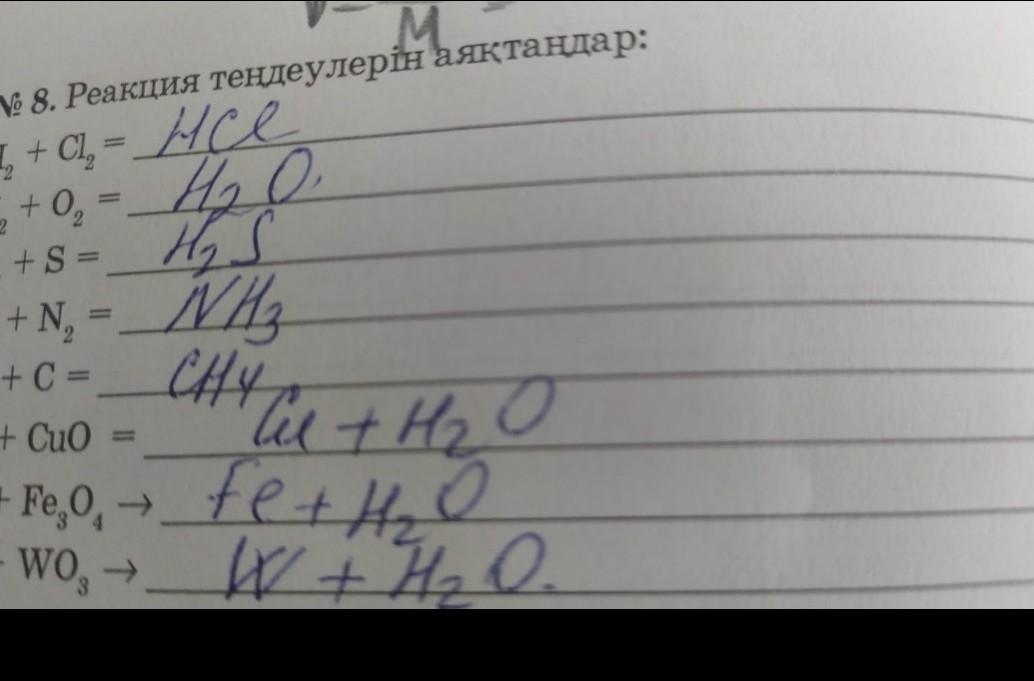 M
№ 8. Реакция теңдеулерін аяқтаңдар:
₂ + Cl₂ = HCl
₂ + O₂ = H₂O.
+ S = H₂S
+ N₂ = NH₃
+ C = CH₄
+ CuO = Cu + H₂O
+ Fe₃O₄ → Fe + H₂O
WO₃ → W + H₂O.